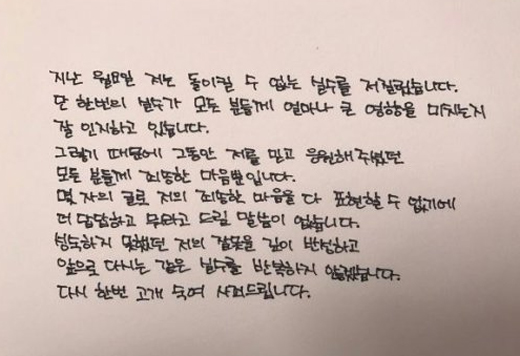 지난 월요일 저는 돌이킬 수 없는 실수를 저질렀습니다.
단 한번의 실수가 모든 분들께 얼마나 큰 영향을 미치는지
잘 인지하고 있습니다.
그렇기 때문에 그동안 저를 믿고 응원해주셨던
모든 분들께 죄송한 마음뿐입니다.
몇 자의 글로 저의 죄송한 마음을 다 표현할 수 없기에
더 답답하고 무어라고 드릴 말씀이 없습니다.
성숙하지 못했던 저의 잘못을 깊이 반성하고
앞으로 다시는 같은 실수를 반복하지 않겠습니다.
다시 한번 고개 숙여 사죄드립니다.